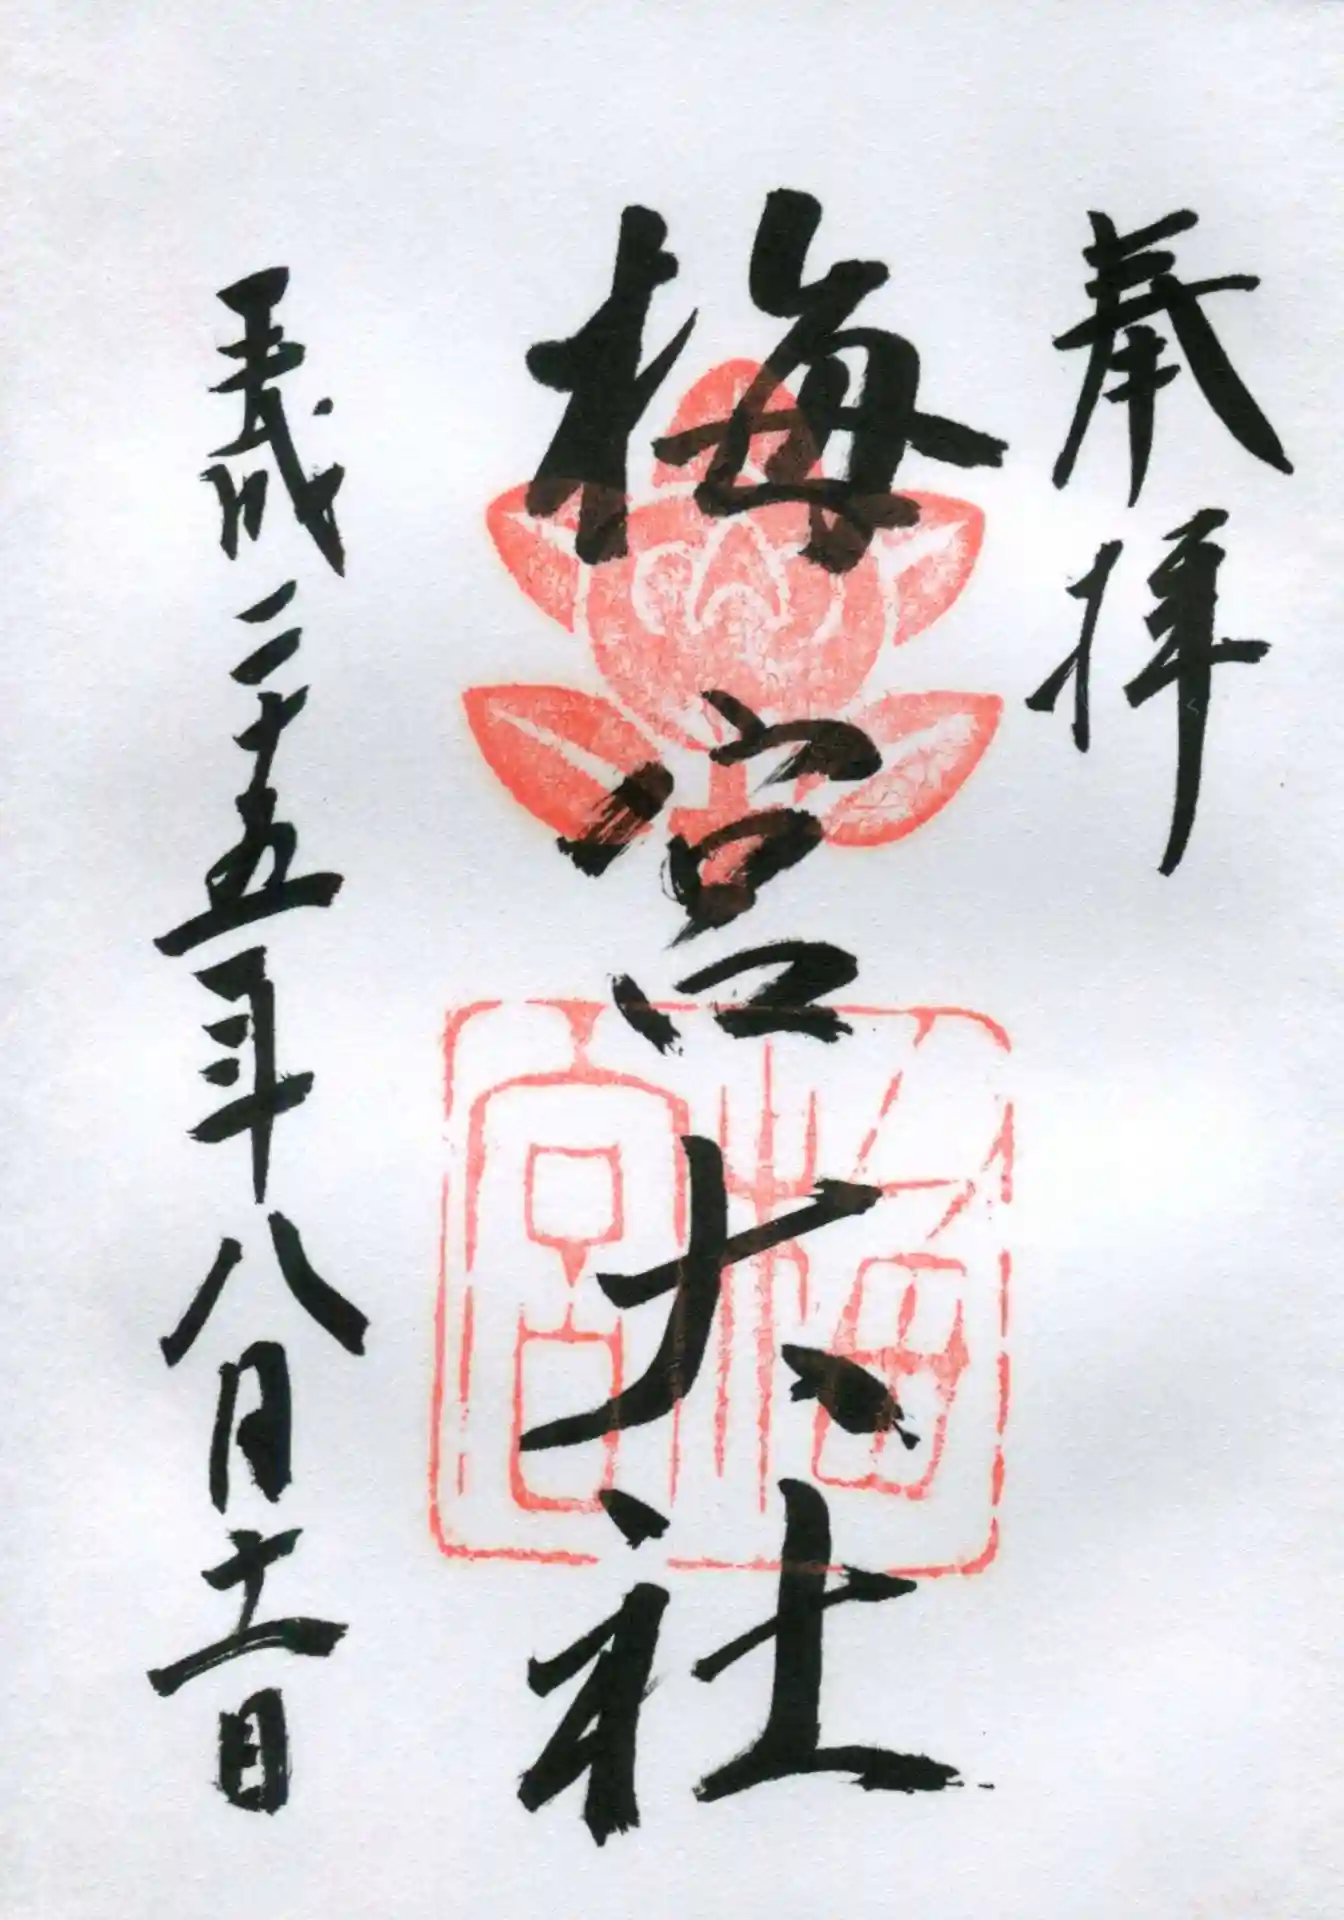 奉拝
梅宮大社
平成二十五年八月十一日
梅宮